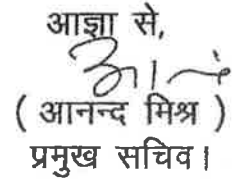 आज्ञा से,
( आनन्द मिश्र )
प्रमुख सचिव।